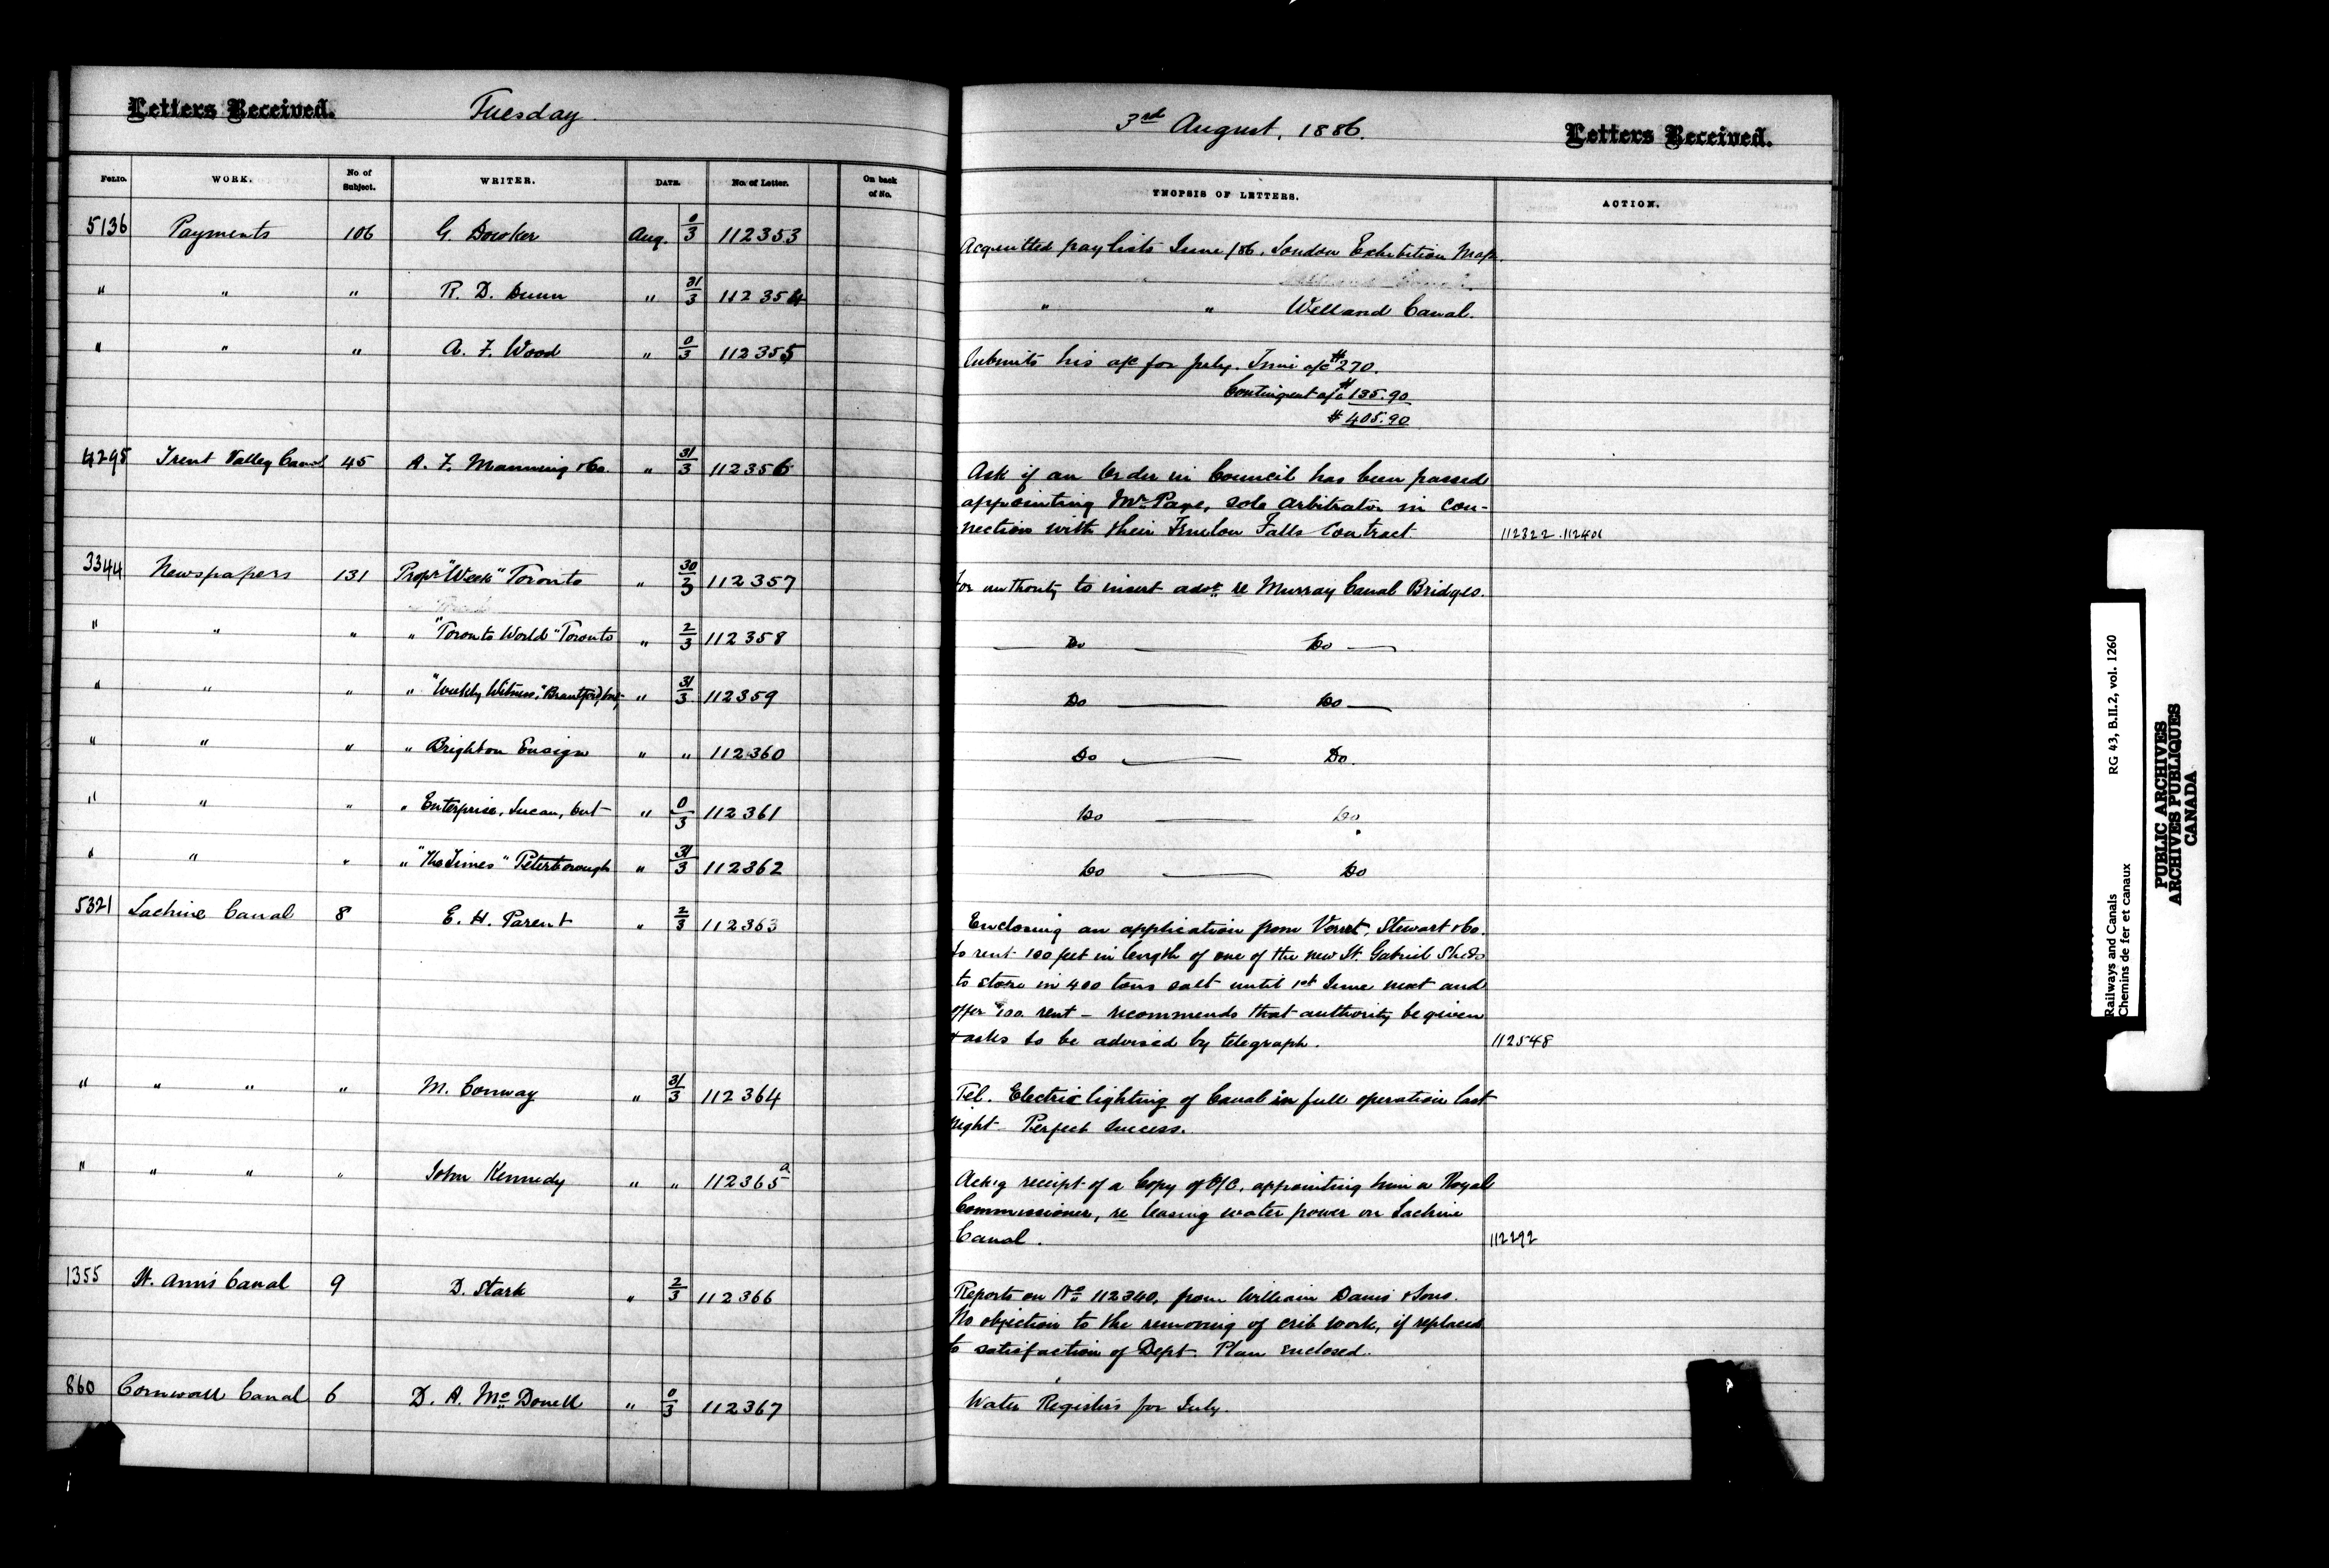 Letters Received.
Tuesday
3rd August, 1886.
Letters Received.
FOLIO. WORK. No of Subject. WRITER. DATE. No. of Letter. On back of No.
YNOPSIS OF LETTERS. ACTION.
5136 Payments 106 G. Dowker Aug. 0/3 112353
Acquitted paylists June /86. London Exhibition Map.
" " " R. D. Dunn " 31/3 112354
" " Welland Canal.
" " " A. F. Wood " 0/3 112355
Submits his a/c for July. Time a/c $270.
Contingent a/c $135.90
$405.90
4295 Trent Valley Canal 45 A. F. Manning & Co. " 31/3 112356
Ask if an Order in Council has been passed
appointing Mr. Page, sole arbitrator in con-
nection with their Fenelon Falls Contract. 112322. 112401
3344 Newspapers 131 Propr "Week" Toronto " 30/3 112357
for authority to insert advt. re Murray Canal Bridges.
" " " " "Toronto World" Toronto " 2/3 112358
Do Do
" " " " "Weekly Witness," Brantford, Ont, " 31/3 112359
Do Do
" " " " Brighton Ensign " " 112360
Do Do.
" " " " Enterprise, Lucan, Ont " 0/3 112361
Do Do
" " " " "The Times" Peterborough " 31/3 112362
Do Do
5321 Lachine Canal 8 E. H. Parent " 2/3 112363
Enclosing an application from Verret, Stewart & Co.
to rent 100 feet in length of one of the new St. Gabriel Sheds
to store in 400 tons salt until 1st June next and
offer $100. rent - recommends that authority be given
& asks to be advised by telegraph. 112548
" " " " M. Conway " 31/3 112364
Tel. Electric lighting of Canal in full operation last
night. Perfect success.
" " " " John Kennedy " " 112365a
Ack'g receipt of a Copy of O/C, appointing him a Royal
Commissioner, re leasing water power on Lachine
Canal. 112292
1355 St. Ann's Canal 9 D. Stark " 2/3 112366
Reports on No. 112340, from William Davis & Sons.
No objection to the removing of crib work, if replaced
to satisfaction of Dept. Plan enclosed.
860 Cornwall Canal 6 D. A. McDonell " 0/3 112367
Water Registers for July.
Railways and Canals RG 43, B.II.2, vol. 1260
Chemins de fer et canaux
PUBLIC ARCHIVES
ARCHIVES PUBLIQUES
CANADA